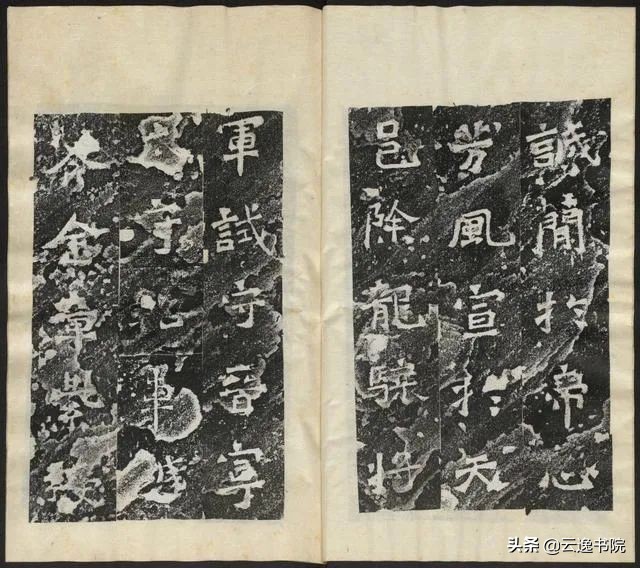 誠簡於帝心
芳風宣於天
邑除龍驤將
軍試守晉寧
守軺車
斧金章紫綬
头条 @云逸书院